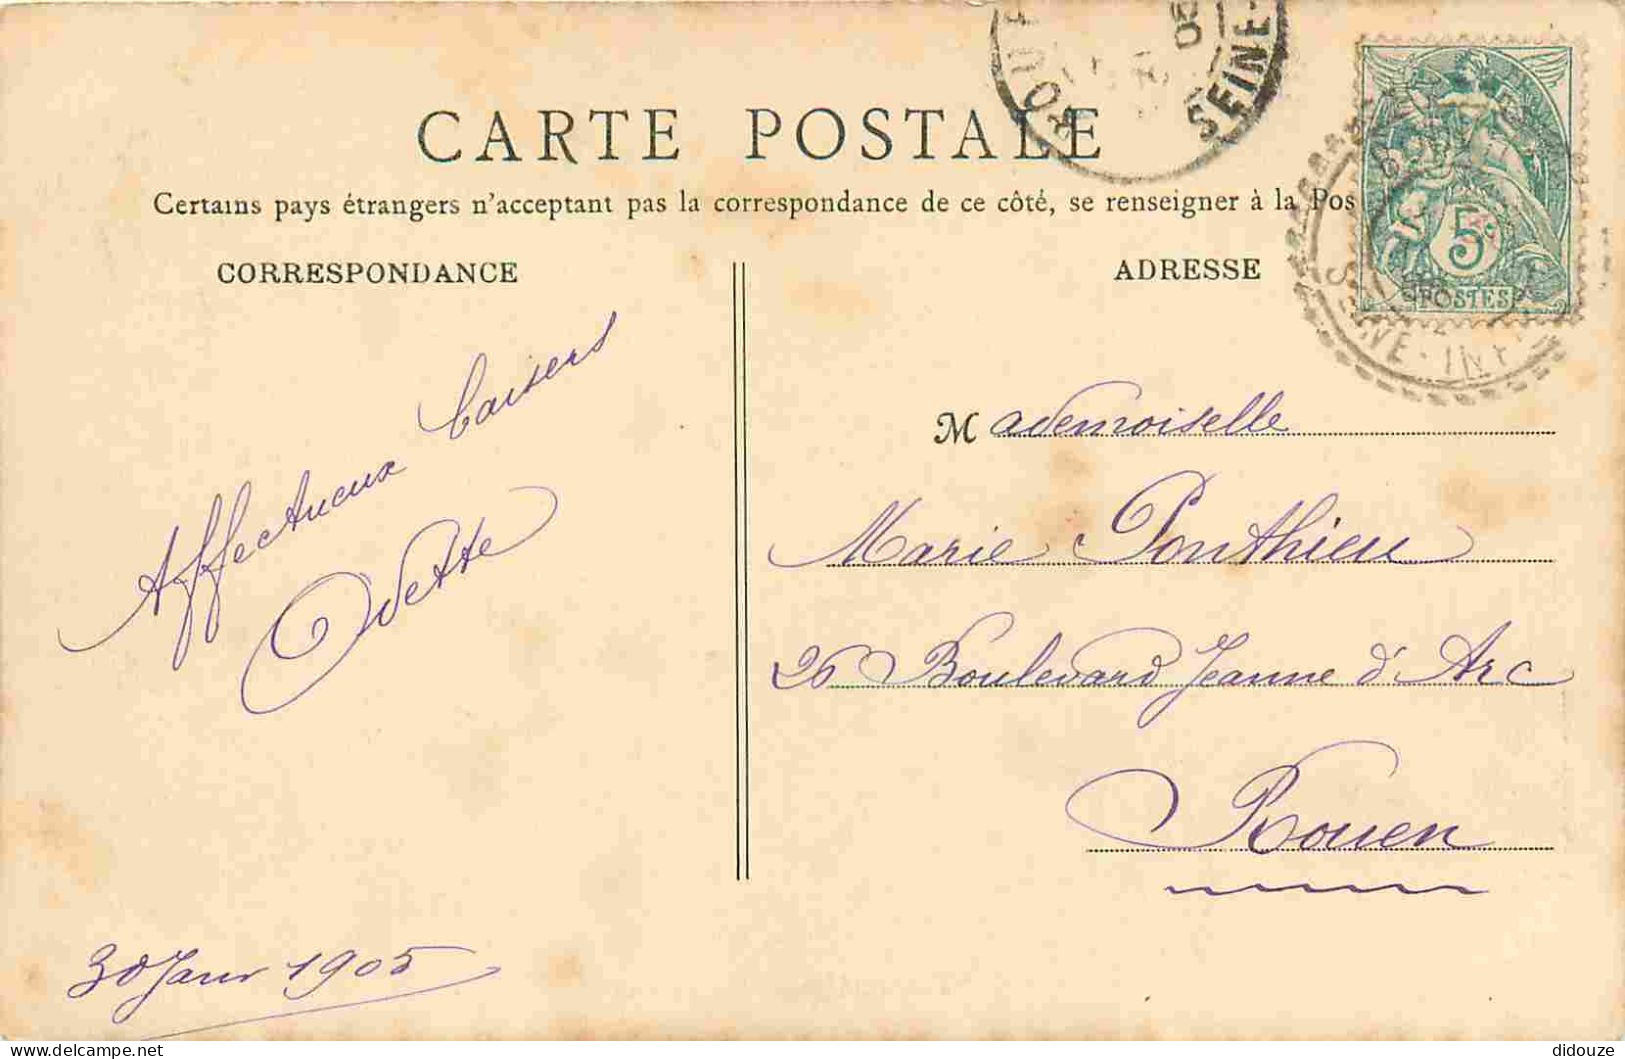 CARTE POSTALE
Certains pays étrangers n'acceptent pas la correspondance de ce côté, se renseigner à la Pos
CORRESPONDANCE
Affectueux baisers
Odette
30 Janv 1905
ADRESSE
Mademoiselle
Marie Ponthieu
26 Boulevard Jeanne d'Arc
Rouen
5c
POSTES
SEINE-
SEINE-INF
didouze
delcampe.net